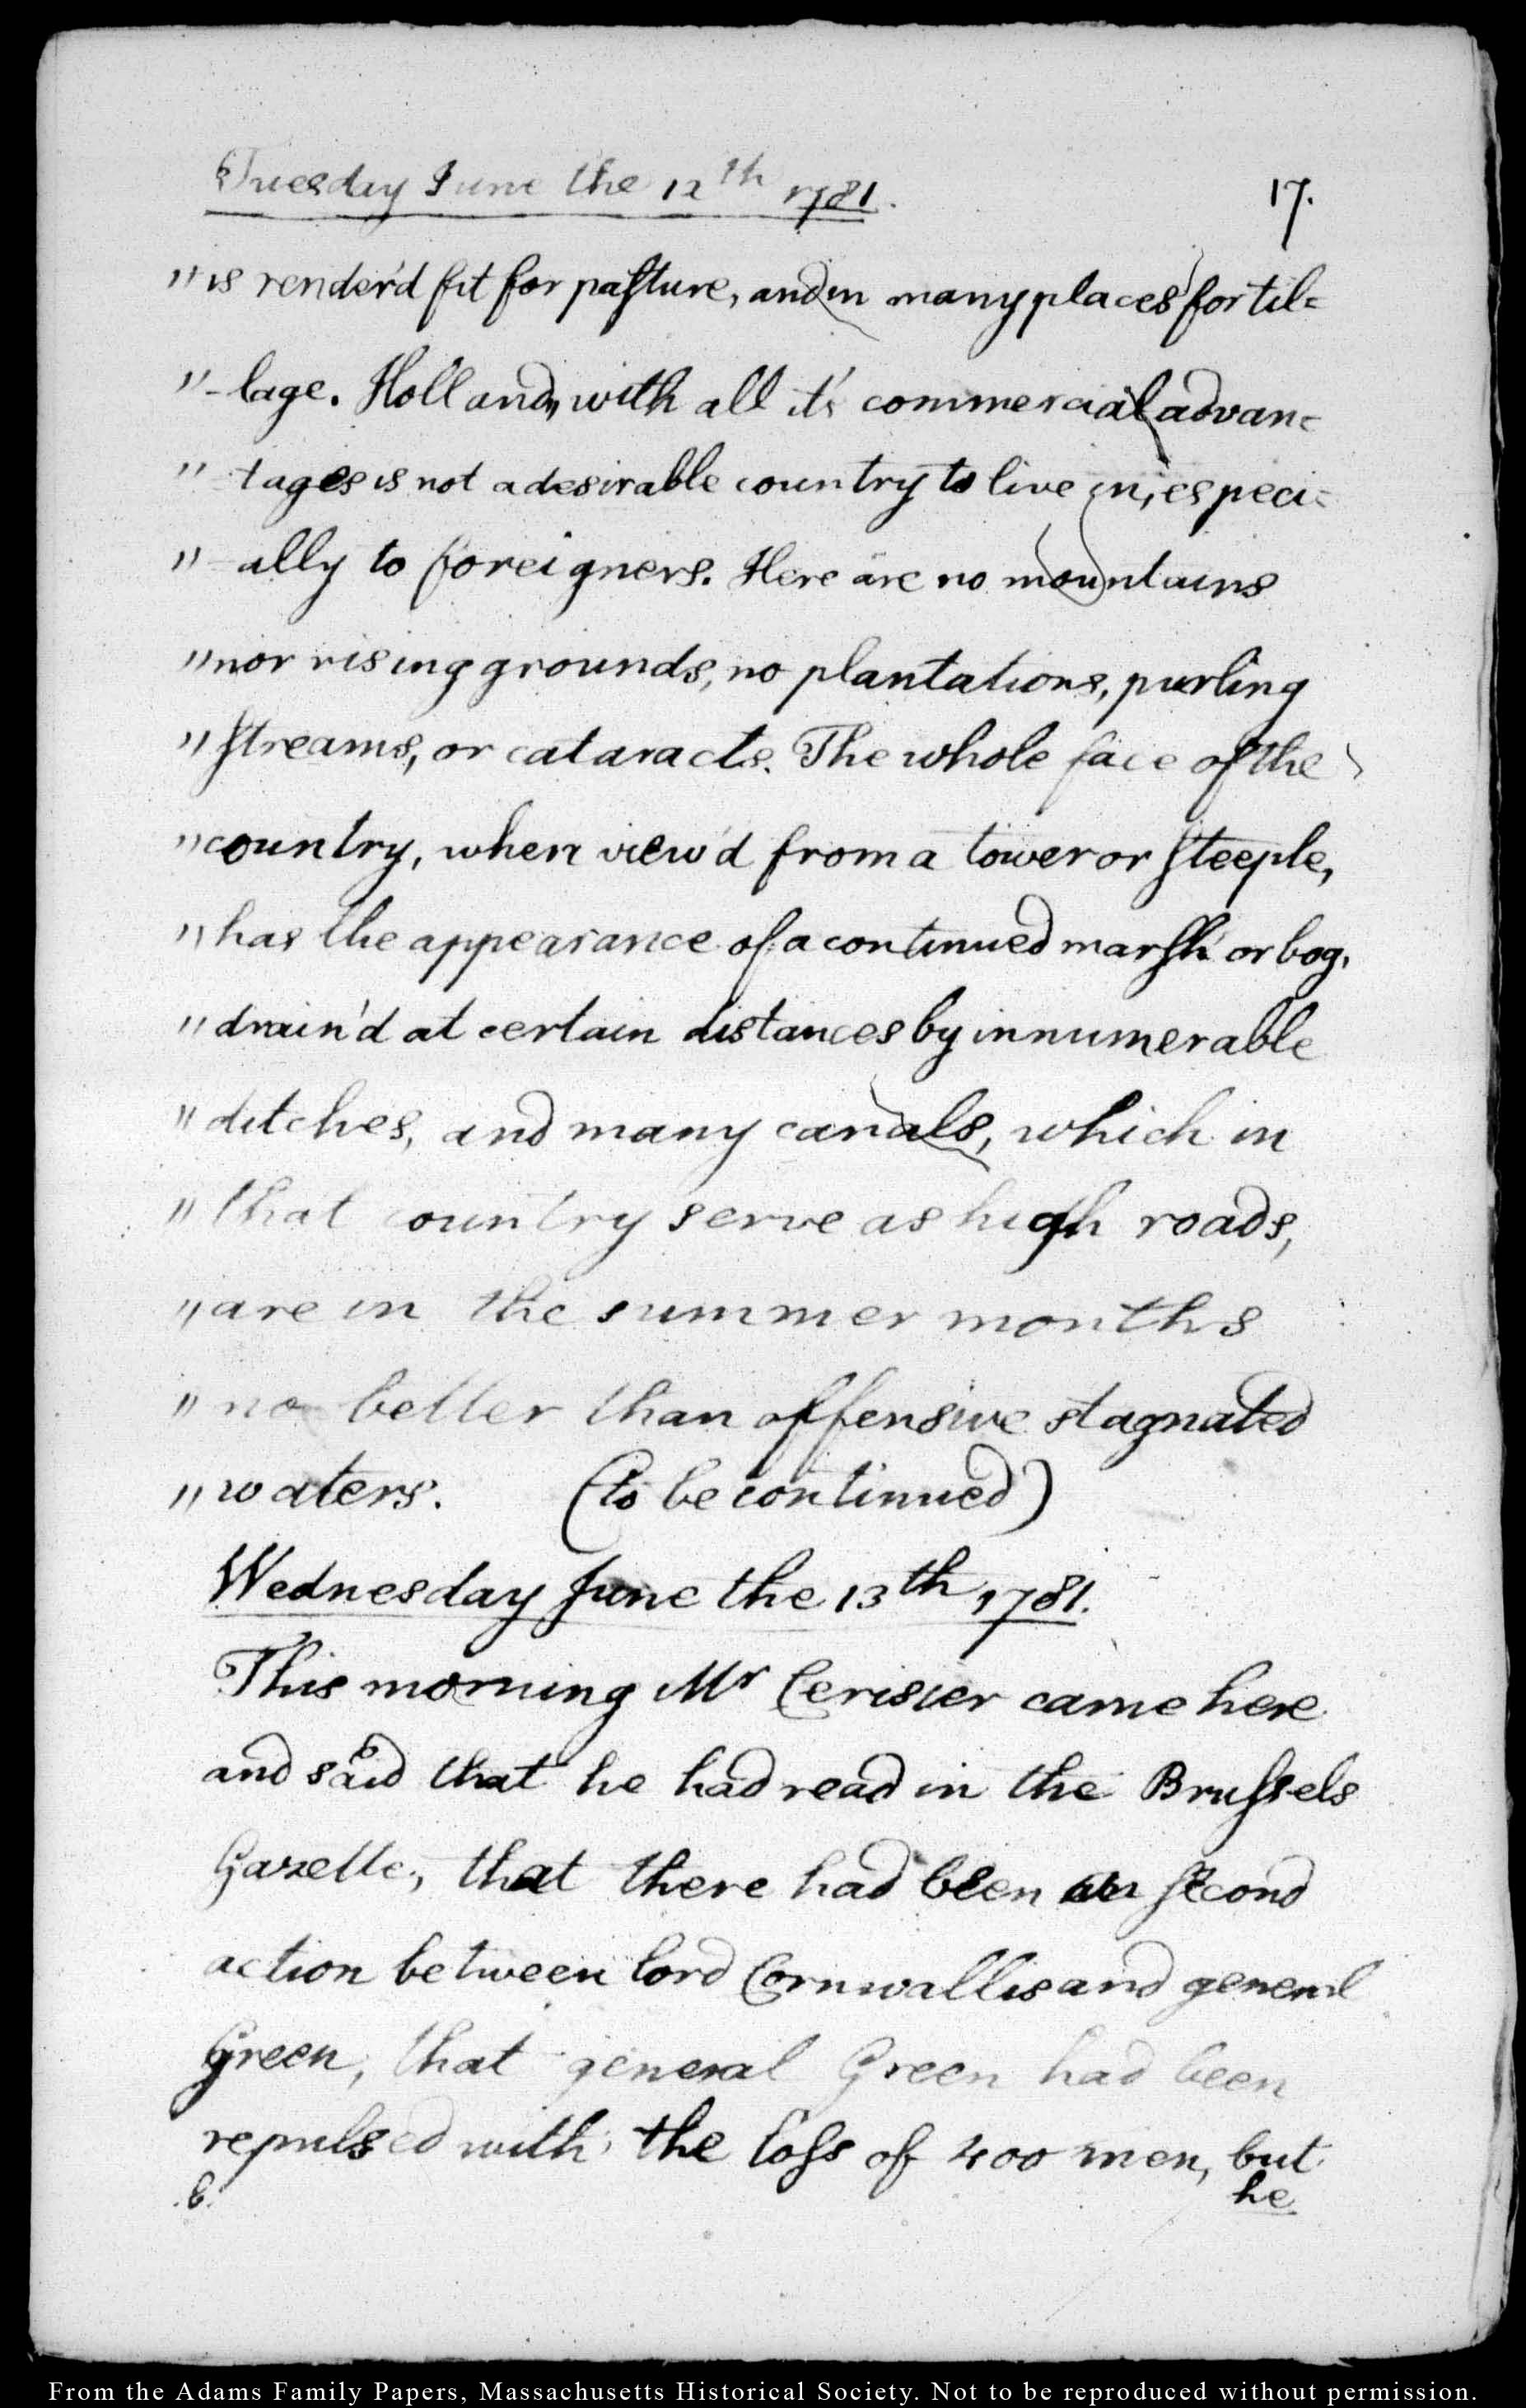 Tuesday June the 12th 1781.
17.
" is render'd fit for pasture, and in many places for til=
"-lage. Holland, with all it's commercial advan=
" tages is not a desirable country to live in, especi=
" ally to foreigners. Here are no mountains
" nor rising grounds, no plantations, purling
" streams, or cataracts. The whole face of the
" country, when view'd from a tower or steeple,
" has the appearance of a continued marsh or bog,
" drain'd at certain distances by innumerable
" ditches, and many canals, which in
" that country serve as high roads,
" are in the summer months
" no better than offensive stagnated
" waters. (to be continued)
Wednesday June the 13th 1781.
This morning Mr Cerisier came here
and said that he had read in the Brussels
Gazette, that there had been a second
action between lord Cornwallis and general
Green, that general Green had been
repulsed with the loss of 400 men, but
he
From the Adams Family Papers, Massachusetts Historical Society. Not to be reproduced without permission.